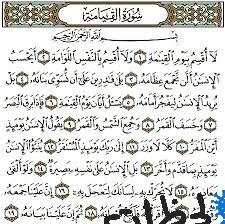 سُورَةُ القِيَامَةِ
بِسْمِ اللَّهِ الرَّحْمَٰنِ الرَّحِيمِ
لَا أُقْسِمُ بِيَوْمِ الْقِيَٰمَةِ ١ وَلَا أُقْسِمُ بِالنَّفْسِ اللَّوَّامَةِ ٢ أَيَحْسَبُ
الْإِنسَٰنُ أَلَّن نَّجْمَعَ عِظَامَهُ ٣ بَلَىٰ قَٰدِرِينَ عَلَىٰ أَن نُّسَوِّيَ بَنَانَهُ ٤ بَلْ
يُرِيدُ الْإِنسَٰنُ لِيَفْجُرَ أَمَامَهُ ٥ يَسْـَٔلُ أَيَّانَ يَوْمُ الْقِيَٰمَةِ ٦ فَإِذَا بَرِقَ الْبَصَرُ
٧ وَخَسَفَ الْقَمَرُ ٨ وَجُمِعَ الشَّمْسُ وَالْقَمَرُ ٩ يَقُولُ الْإِنسَٰنُ يَوْمَئِذٍ
أَيْنَ الْمَفَرُّ ١٠ كَلَّا لَا وَزَرَ ١١ إِلَىٰ رَبِّكَ يَوْمَئِذٍ الْمُسْتَقَرُّ ١٢ يُنَبَّؤُا الْإِنسَٰنُ
يَوْمَئِذٍ بِمَا قَدَّمَ وَأَخَّرَ ١٣ بَلِ الْإِنسَٰنُ عَلَىٰ نَفْسِهِ بَصِيرَةٌ ١٤ وَلَوْ أَلْقَىٰ
مَعَاذِيرَهُ ١٥ لَا تُحَرِّكْ بِهِ لِسَانَكَ لِتَعْجَلَ بِهِ ١٦ إِنَّ عَلَيْنَا جَمْعَهُ
١٨ ثُمَّ إِنَّ عَلَيْنَا بَيَانَهُ ١٩